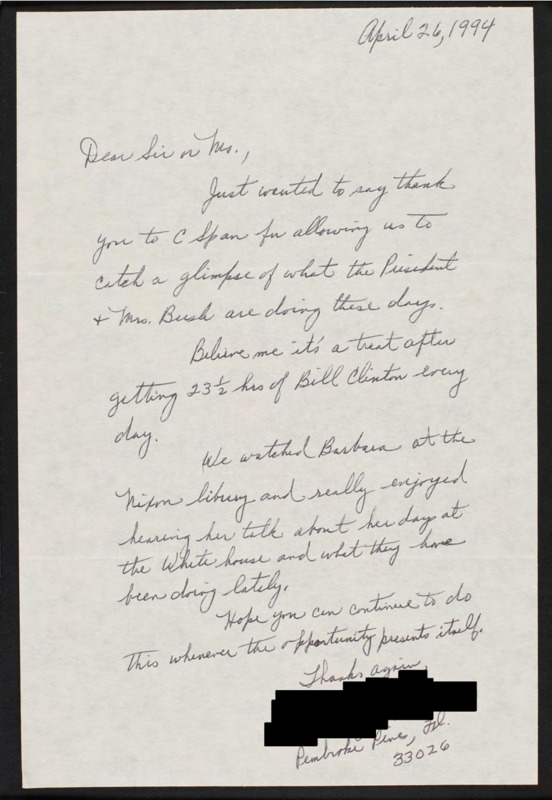 April 26, 1994
Dear Sir or Ms.,
Just wanted to say thank
you to C Span for allowing us to
catch a glimpse of what the President
& Mrs. Bush are doing these days.
Believe me it's a treat after
getting 23½ hrs of Bill Clinton every
day.
We watched Barbara at the
Nixon library and really enjoyed
hearing her talk about her days at
the White house and what they have
been doing lately.
Hope you can continue to do
this whenever the opportunity presents itself.
Thanks again,
Pembroke Pines, Fl.
33026